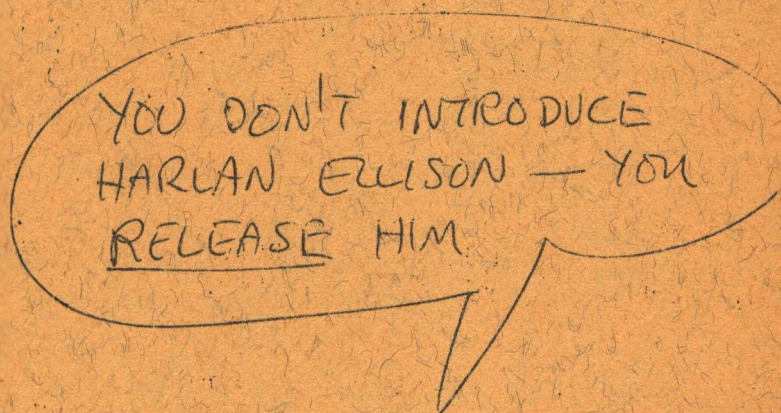 YOU DON'T INTRODUCE
HARLAN ELLISON — YOU
RELEASE HIM